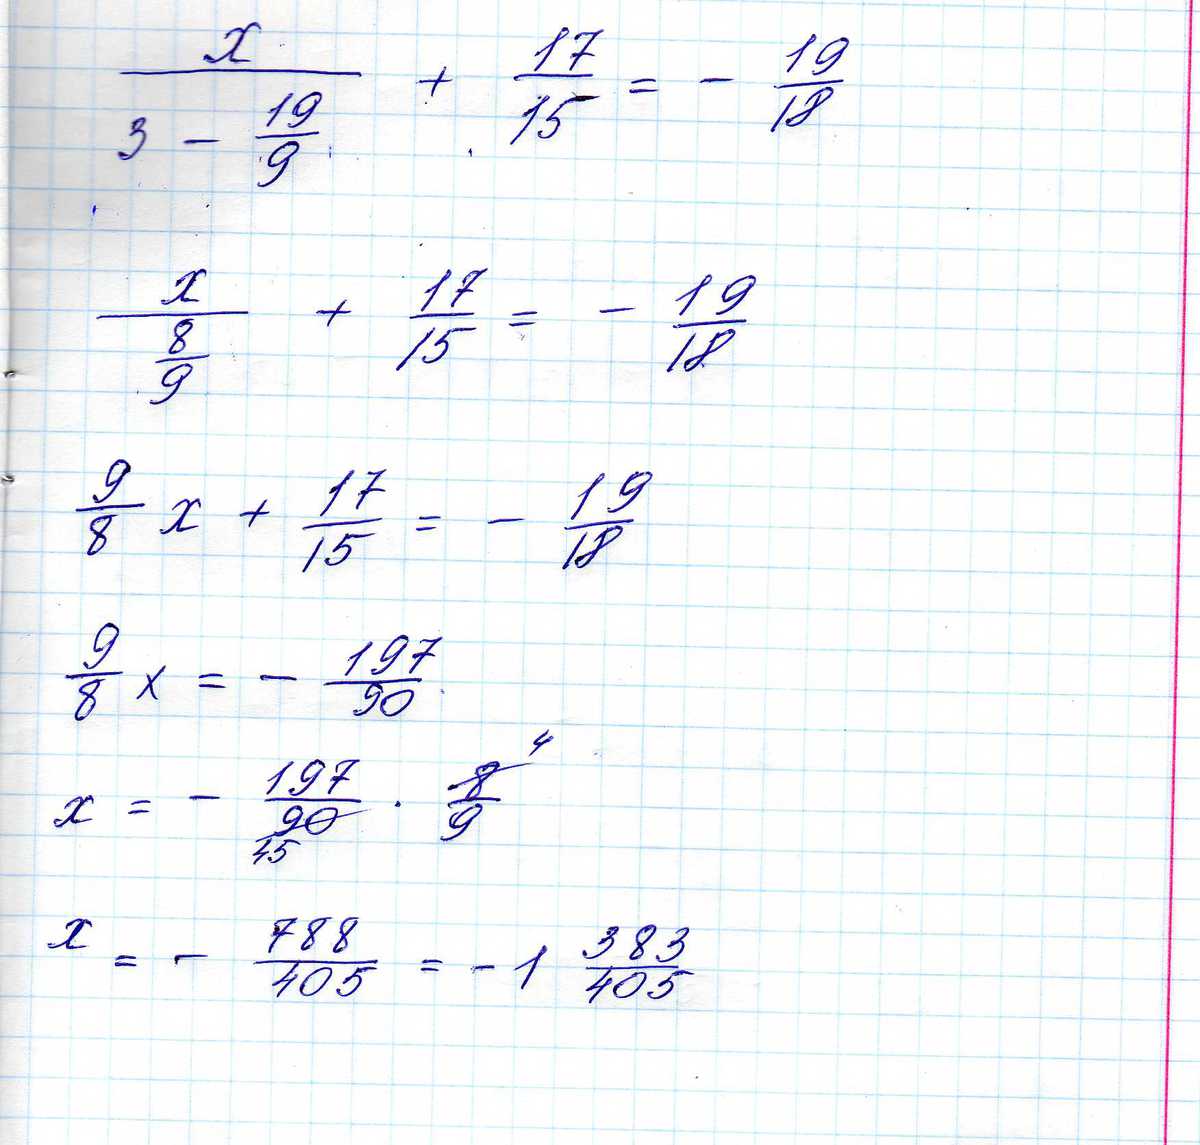 x/(3 - 19/9) + 17/15 = - 19/18
x/(8/9) + 17/15 = - 19/18
9/8 x + 17/15 = - 19/18
9/8 x = - 197/90
x = - 197/90 · 8/9 4 45
x = - 788/405 = - 1 383/405